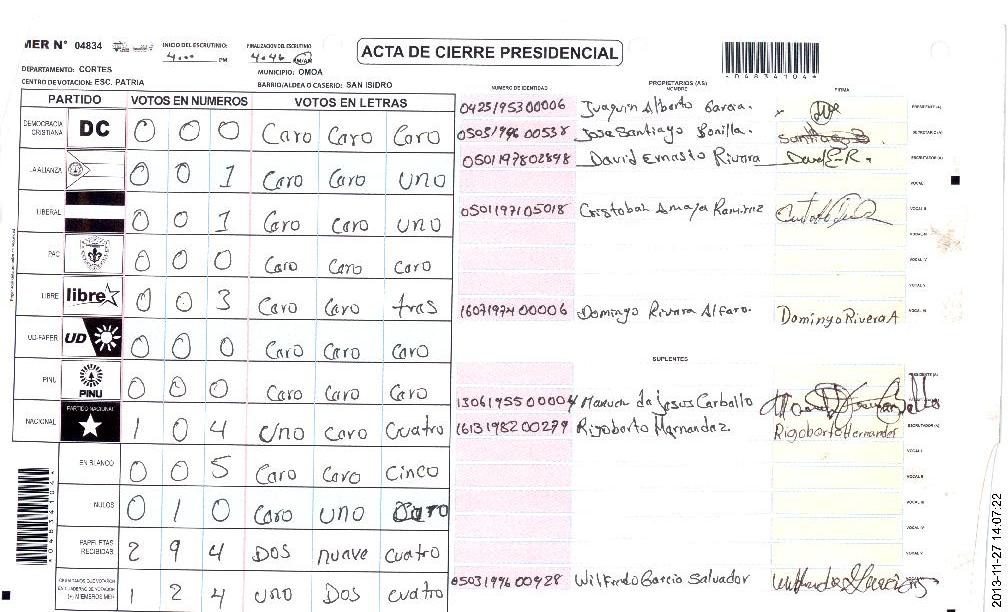 MER N° 04834
INICIO DEL ESCRUTINIO: 4:00 PM
FINALIZACION DEL ESCRUTINIO 4:46
ACTA DE CIERRE PRESIDENCIAL
DEPARTAMENTO: CORTES
MUNICIPIO: OMOA
CENTRO DE VOTACION: ESC. PATRIA
BARRIO/ALDEA O CASERIO: SAN ISIDRO
PARTIDO VOTOS EN NUMEROS VOTOS EN LETRAS
DEMOCRACIA CRISTIANA DC 0 0 0 Caro Caro Caro
LA ALIANZA 0 0 1 Caro Caro uno
LIBERAL 0 0 1 Caro Caro uno
PAC 0 0 0 Caro Caro Caro
LIBRE libre 0 0 3 Caro Caro tras
UD-FAPER UD 0 0 0 Caro Caro Caro
PINU PINU 0 0 0 Caro Caro Caro
NACIONAL PARTIDO NACIONAL 1 0 4 uno Caro Cuatro
EN BLANCO 0 0 5 Caro Caro Cinco
NULOS 0 1 0 Caro uno Caro
PAPELETAS RECIBIDAS 2 9 4 DOS nuave cuatro
1 2 4 uno Dos cuatro
NUMERO DE IDENTIDAD
PROPIETARIOS (AS)
NOMBRE
FIRMA
0425195300006 Juaquin Alberto Garcia. PRESIDENTE(A)
Jose Santiago Bonilla. Santiago B SECRETARIO(A)
0501197802898 David Ernasto Rivara David E-R. ESCRUTADOR(A)
VOCAL I
0501197105018 Cristobal Amaya Ramirez VOCAL II
VOCAL III
VOCAL IV
VOCAL V
1607197400006 Domingo Rivara Alfaro. Domingo Rivera A VOCAL VI
SUPLENTES
PRESIDENTE(A)
1306195500004 Manuel da jesus Carballo
1613198200279 Rigoberto Hernandez. Rigoberto Hernandez ESCRUTADOR(A)
VOCAL I
VOCAL II
VOCAL III
VOCAL IV
VOCAL V
0503199600928 Wilfredo Garcia Salvador
048341044
2013-11-27 14:07:22